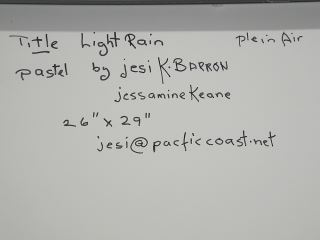 Title Light Rain plein Air
pastel by jesi K. BARRON
jessamine Keane
26" x 29"
jesi@pacficcoast.net